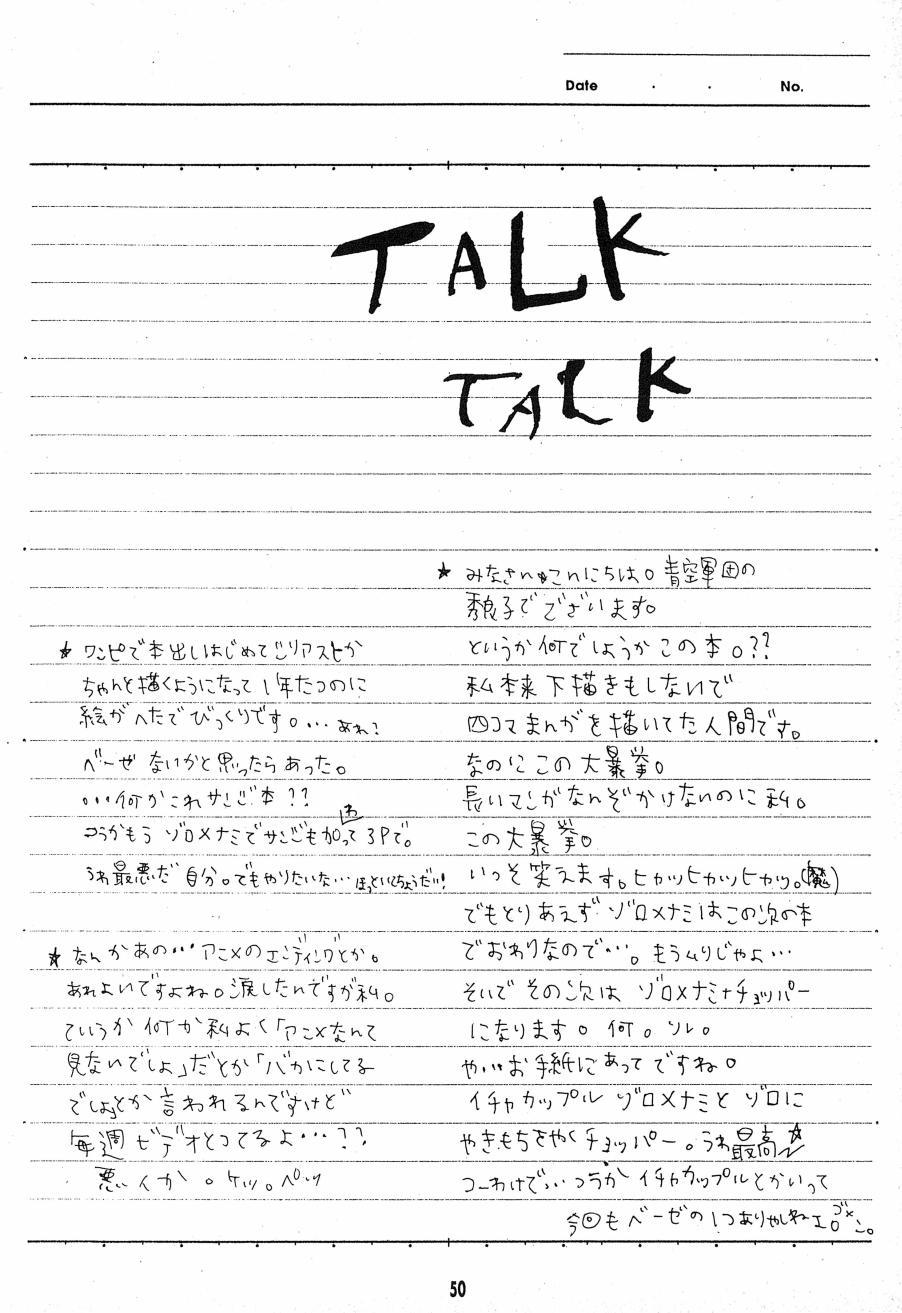 Date ・ ・ No.
TALK
TALK
★ みなさんこんにちは。青空軍団の
子でございます。
というか何でしょうかこの本。??
私本来下描きもしないで
四コマまんがを描いてた人間です。
なのにこの大暴挙。
長いマンがなんぞかけないのに私。
この大暴挙。
いっそ笑えます。ヒカッヒカッヒカッ。(魔)
でもとりあえずゾロ×ナミはこの次の本
でおわりなので…。もうムリじゃよ…
そいでその次はゾロ×ナミ+チョッパー
になります。何。ソレ。
や…お手紙にあってですね。
イチャカップルゾロ×ナミとゾロに
やきもちをやくチョッパー。うわ最高☆
つーわけで…つうかイチャカップルとかいって
今回もベーゼの1つありゃしねェ。ゴメン。
★ ワンピで本出しはじめて
ちゃんと描くようになって1年たつのに
絵がへたでびっくりです。…あれ?
ベーゼないかと思ったらあった。
…何かこれサンジ本??
つうかもうゾロ×ナミでサンジも加わって3Pで。
うわ最悪だ自分。でもやりたいな…ほっといてちょうだい!
★ なんかあの…アニメのエンディングとか。
あれよいですよね。涙したんですが私。
ていうか何か私よく「アニメなんて
見ないでしょ」だとか「バカにしてる
でしょ」とか言われるんですけど
毎週ビデオとってるよ…??
悪いか。ケッ。ペッ
50